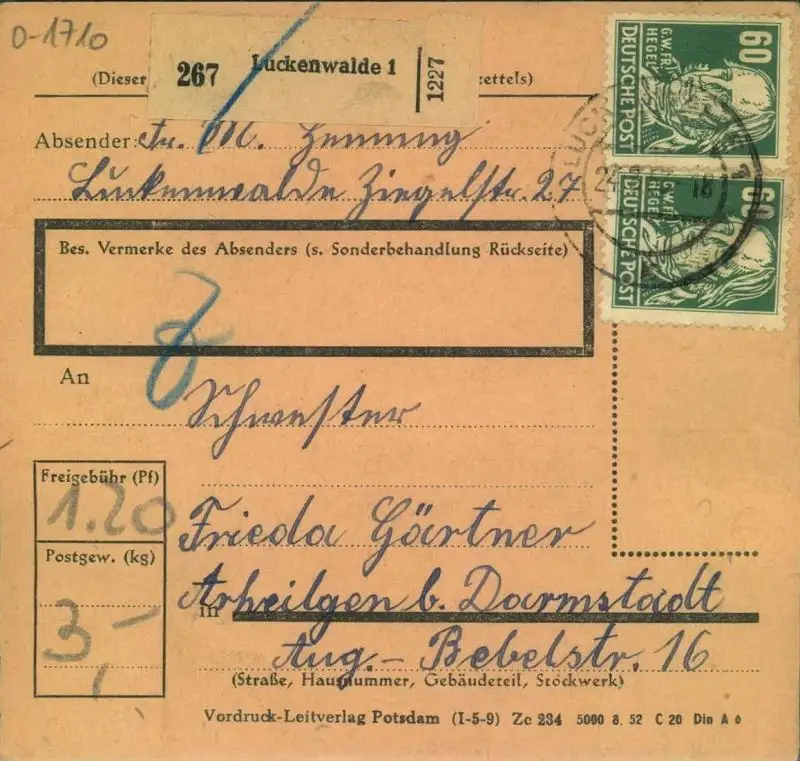 D-1710
267 Luckenwalde 1 1227
(Dieser zettels)
G.W.FR.
HEGEL
60
DEUTSCHE POST
Absender: Fr. M. Hennung
Luckenwalde Ziegelstr. 27
G.W.FR.
HEGEL
60
DEUTSCHE POST
Bes. Vermerke des Absenders (s. Sonderbehandlung Rückseite)
An
Schwester
Freigebühr (Pf)
1.20
Frieda Gärtner
Postgew. (kg)
3,-
in Arheilgen b. Darmstadt
Aug.- Bebelstr. 16
(Straße, Hausnummer, Gebäudeteil, Stockwerk)
Vordruck-Leitverlag Potsdam (I-5-9) Zc 234 5000 8. 52 C 20 Din A 6